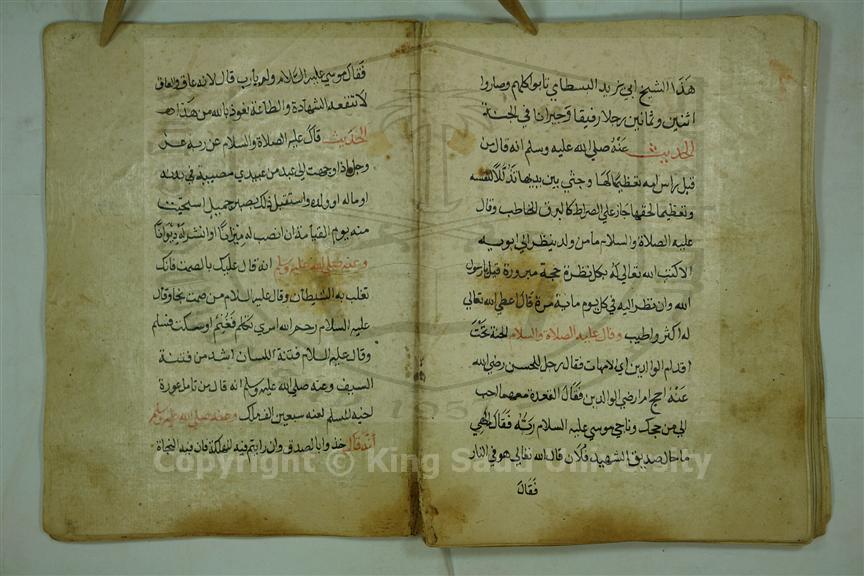 هذا الشيخ ابي يزيد البسطامي تابوا كلهم وصاروا
اثنين وثمانين رجلا رفيقا وجيرانا في الجنة
الحديث عنه صلي الله عليه وسلم انه قال من
قبل راس امه تعظيما لها وجثي بين يديها تذللا لنفسه
وتعظيما لحقها جاز علي الصراط كالبرق الخاطب وقال
عليه الصلاة والسلام ما من ولد ينظر الي ابويه
الا كتب الله تعالي له بكل نظرة حجة مبرورة قيل يارسول
الله وان نظر اليه في كل يوم ماية مرة قال عطي الله تعالي
له اكثر واطيب وقال عليه الصلاة والسلام الجنة تحت
اقدام الوالدين اي الامهات فقال رجل للحسن رضي الله
عنه احج ام ارضي الوالدين فقال القعدة معهما احب
الي من حجك وناجي موسي عليه السلام ربه فقال الهي
ما حال صديق الشهيد فلان قال الله تعالي هو في النار
فقال
فقال موسي عليه السلام ولم يارب قال لانه عاق والعاق
لا تنفعه الشهادة والطاعة نعوذ بالله من هذا
الحديث قال عليه الصلاة والسلام عن ربه عز
وجل اذا وجهت الي عبد من عبيدي مصيبة في بدنه
او ماله او ولده واستقبل ذلك بصبر جميل استحيت
منه يوم القيامة ان انصب له ميزانا او انشر له ديوانا
وعنه صلي الله عليه وسلم انه قال عليك بالصمت فانك
تغلب به الشيطان وقال عليه السلام من صمت نجا وقال
عليه السلام رحم الله امري تكلم فغنم او سكت فسلم
وقال عليه السلام فتنة اللسان اشد من فتنة
السيف وعنه صلي الله عليه وسلم انه قال من تامل عورة
اخيه المسلم لعنه سبعين الف ملك وعنه صلي الله عليه وسلم
انه قال خذوا بالصدق وان رايتم فيه الهلكة فان فيه النجاة
Copyright © King Saud University